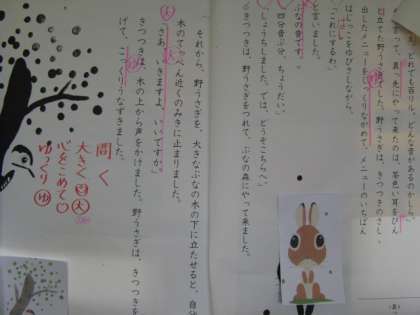 とても百い、どな音があるのかしら。
って、真っ先にやって来たのは、茶色い耳をぴん
立てた野うさぎでした。野うさぎは、きつつきのさし
出したメニューをじっくりながめて、メニューのいちばん
はしっこをゆびさしながら、
「これにするわ。」
と言いました。
ぶなの音です。
「四分音ぷ分、ちょうだい。」
「しょうちしました。では、どうぞこちらへ。」
きつつきは、野うさぎをつれて、ぶなの森にやって来ました。
それから、野うさぎを、大きなぶなの木の下に立たせると、自分
木のてっぺん近くのみきに止まりました。
「さあ、いきますよ、いいですか。」
きつつきは、木の上から声をかけました。野うさぎは、きつつきを
げて、こっくりうなずきました。
間く
大きく 大
心をこめて
ゆっくり ゆ